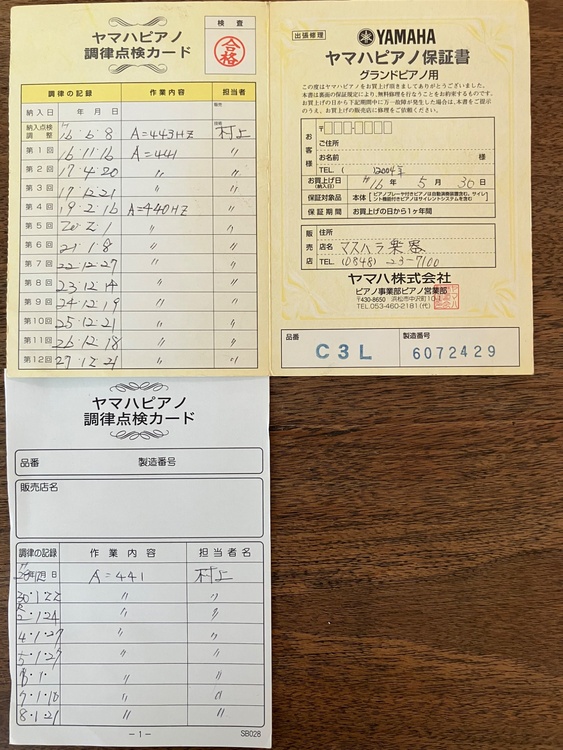 ヤマハピアノ
調律点検カード
検 査
合格
調律の記録 作業内容 担当者
納入日 年 月 日 販売
納入点検調整 H16・6・8 A=443HZ 技術 村上
第1回 16・11・16 A=441 〃
第2回 17・4・20 〃 〃
第3回 17・12・21 〃 〃
第4回 19・2・16 A=440HZ 〃
第5回 20・2・1 〃 〃
第6回 21・1・8 〃 〃
第7回 22・12・27 〃 〃
第8回 23・12・14 〃 〃
第9回 24・12・19 〃 〃
第10回 25・12・21 〃 〃
第11回 26・12・18 〃 〃
第12回 27・12・21 〃 〃
出張修理
YAMAHA
ヤマハピアノ保証書
グランドピアノ用
この度はヤマハピアノをお買上げ頂きましてありがとうございました。
本書は裏面の保証規定により、無料修理を行なうことをお約束するものです。
お買上げの日から下記期間中に万一故障が発生した場合は、本書をご提示
のうえ、お買上げの販売店に修理をご依頼ください。
お客様
〒
ご住所
お名前 様
TEL (
2004年
お買上げ日(納入日) H16 年 5 月 30 日
保証対象品 本体
保証期間 お買上げの日から1ヶ年間
販売店
住所
店名 マスハラ楽器
TEL (0848) 23-7100
ヤマハ株式会社
ピアノ事業部ピアノ営業部
〒430-8650 浜松市中沢町10
TEL.053-460-2181(代)
品番 C3L 製造番号 6072429
ヤマハピアノ
調律点検カード
品番 製造番号
販売店名
調律の記録 作業内容 担当者名
A=441 村上
30・1・22 〃 〃
2・1・24 〃 〃
4・1・27 〃 〃
5・1・27 〃 〃
6・1・ 〃 〃
7・1・18 〃 〃
8・1・21 〃 〃
－1－ SB028